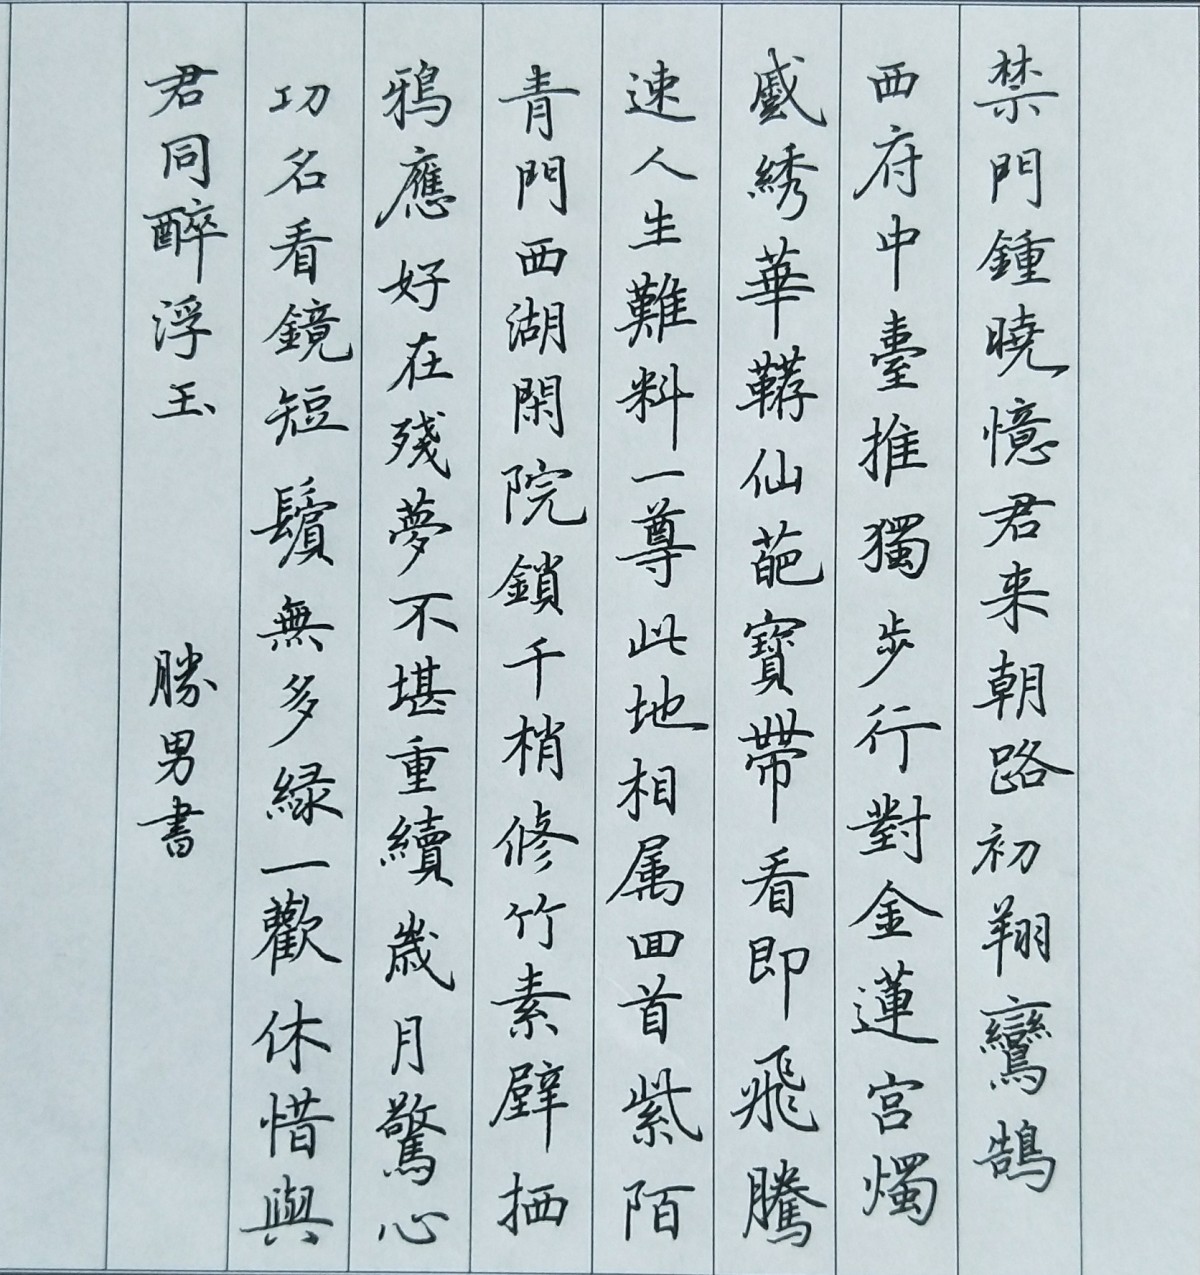 禁門鍾曉憶君来朝路初翔鸞鵠
西府中臺推獨步行對金蓮宮燭
蹙綉華韉仙葩寶帶看即飛騰
速人生難料一尊此地相属回首紫陌
青門西湖閑院鎖千梢修竹素壁栖
鴉應好在殘夢不堪重續歲月驚心
功名看鏡短鬢無多綠一歡休惜與
君同醉浮玉 勝男書